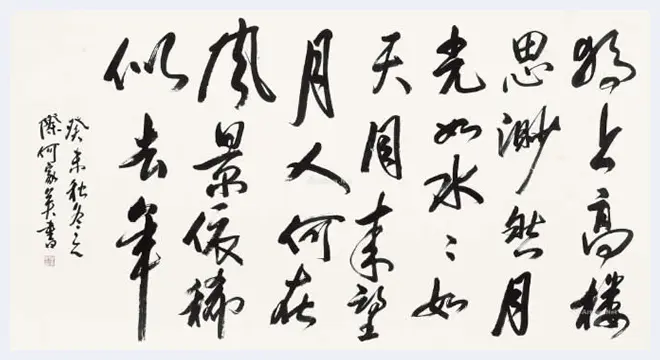 独上高楼
思渺然月
光如水〻如
天同来望
月人何在
风景依稀
似去年
癸未秋冬之
際何家英書